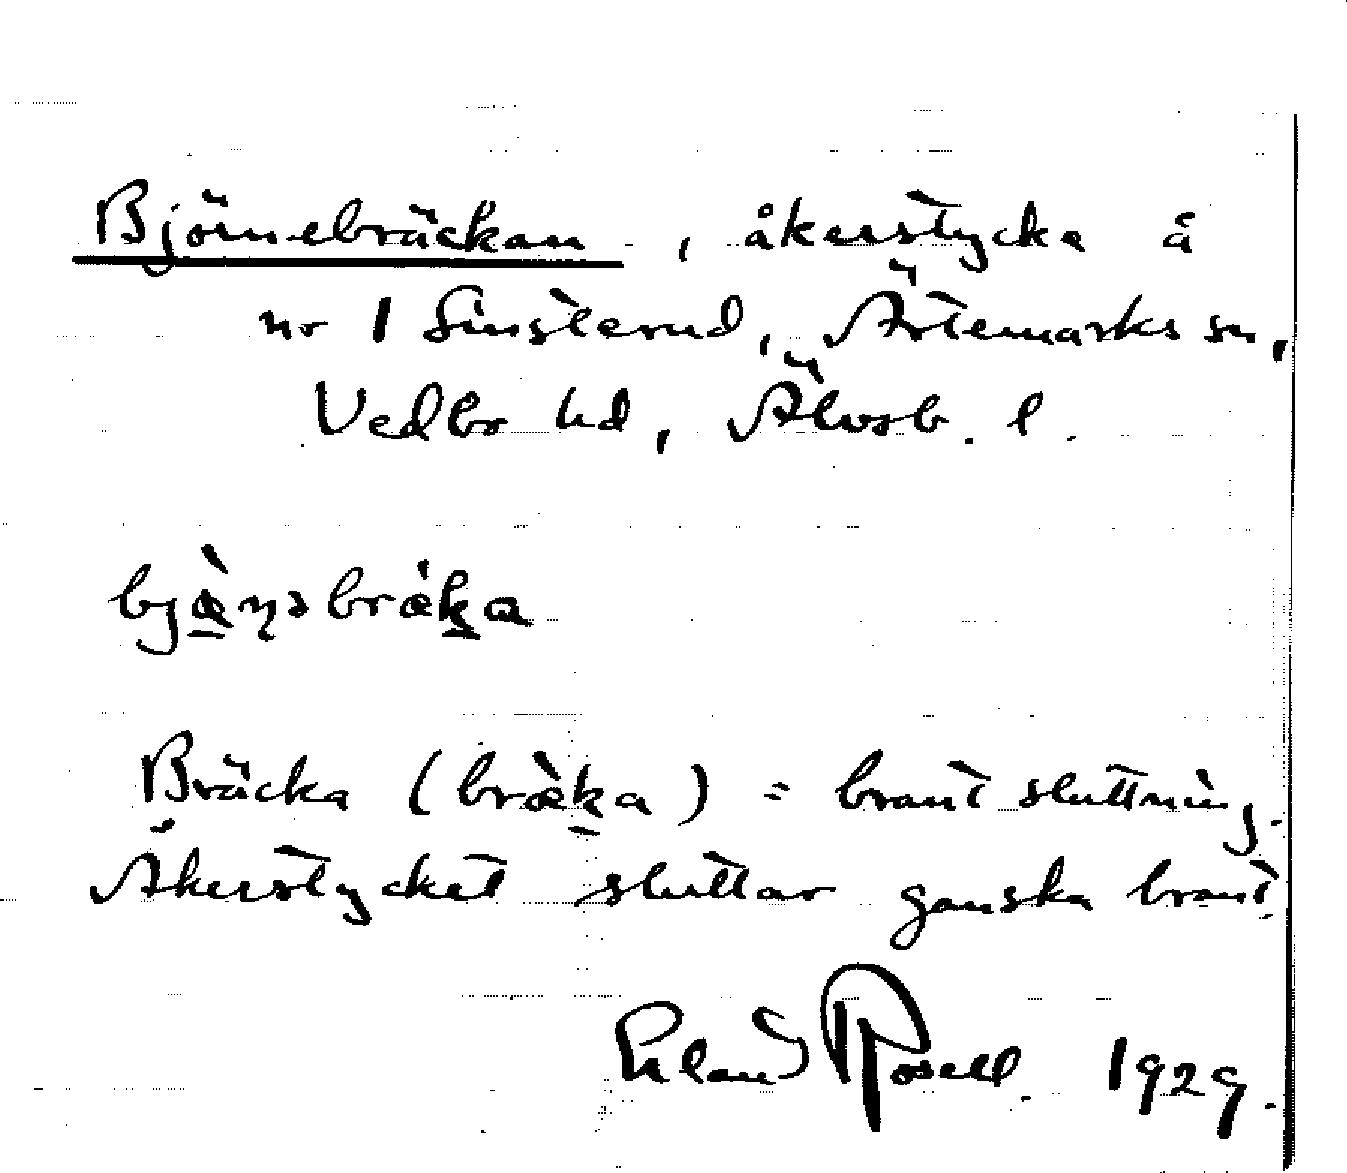 Björnebräckan, åkerstycke å
nr 1 Sinsterud, Ärtemarks sn,
Vedbo hd, Älvsb. l.
bjæ̀ɳəbræ̀ka
Bräcka (bræ̀ka) = brant sluttning.
Åkerstycket sluttar ganska brant.
Erland Rosell 1929.